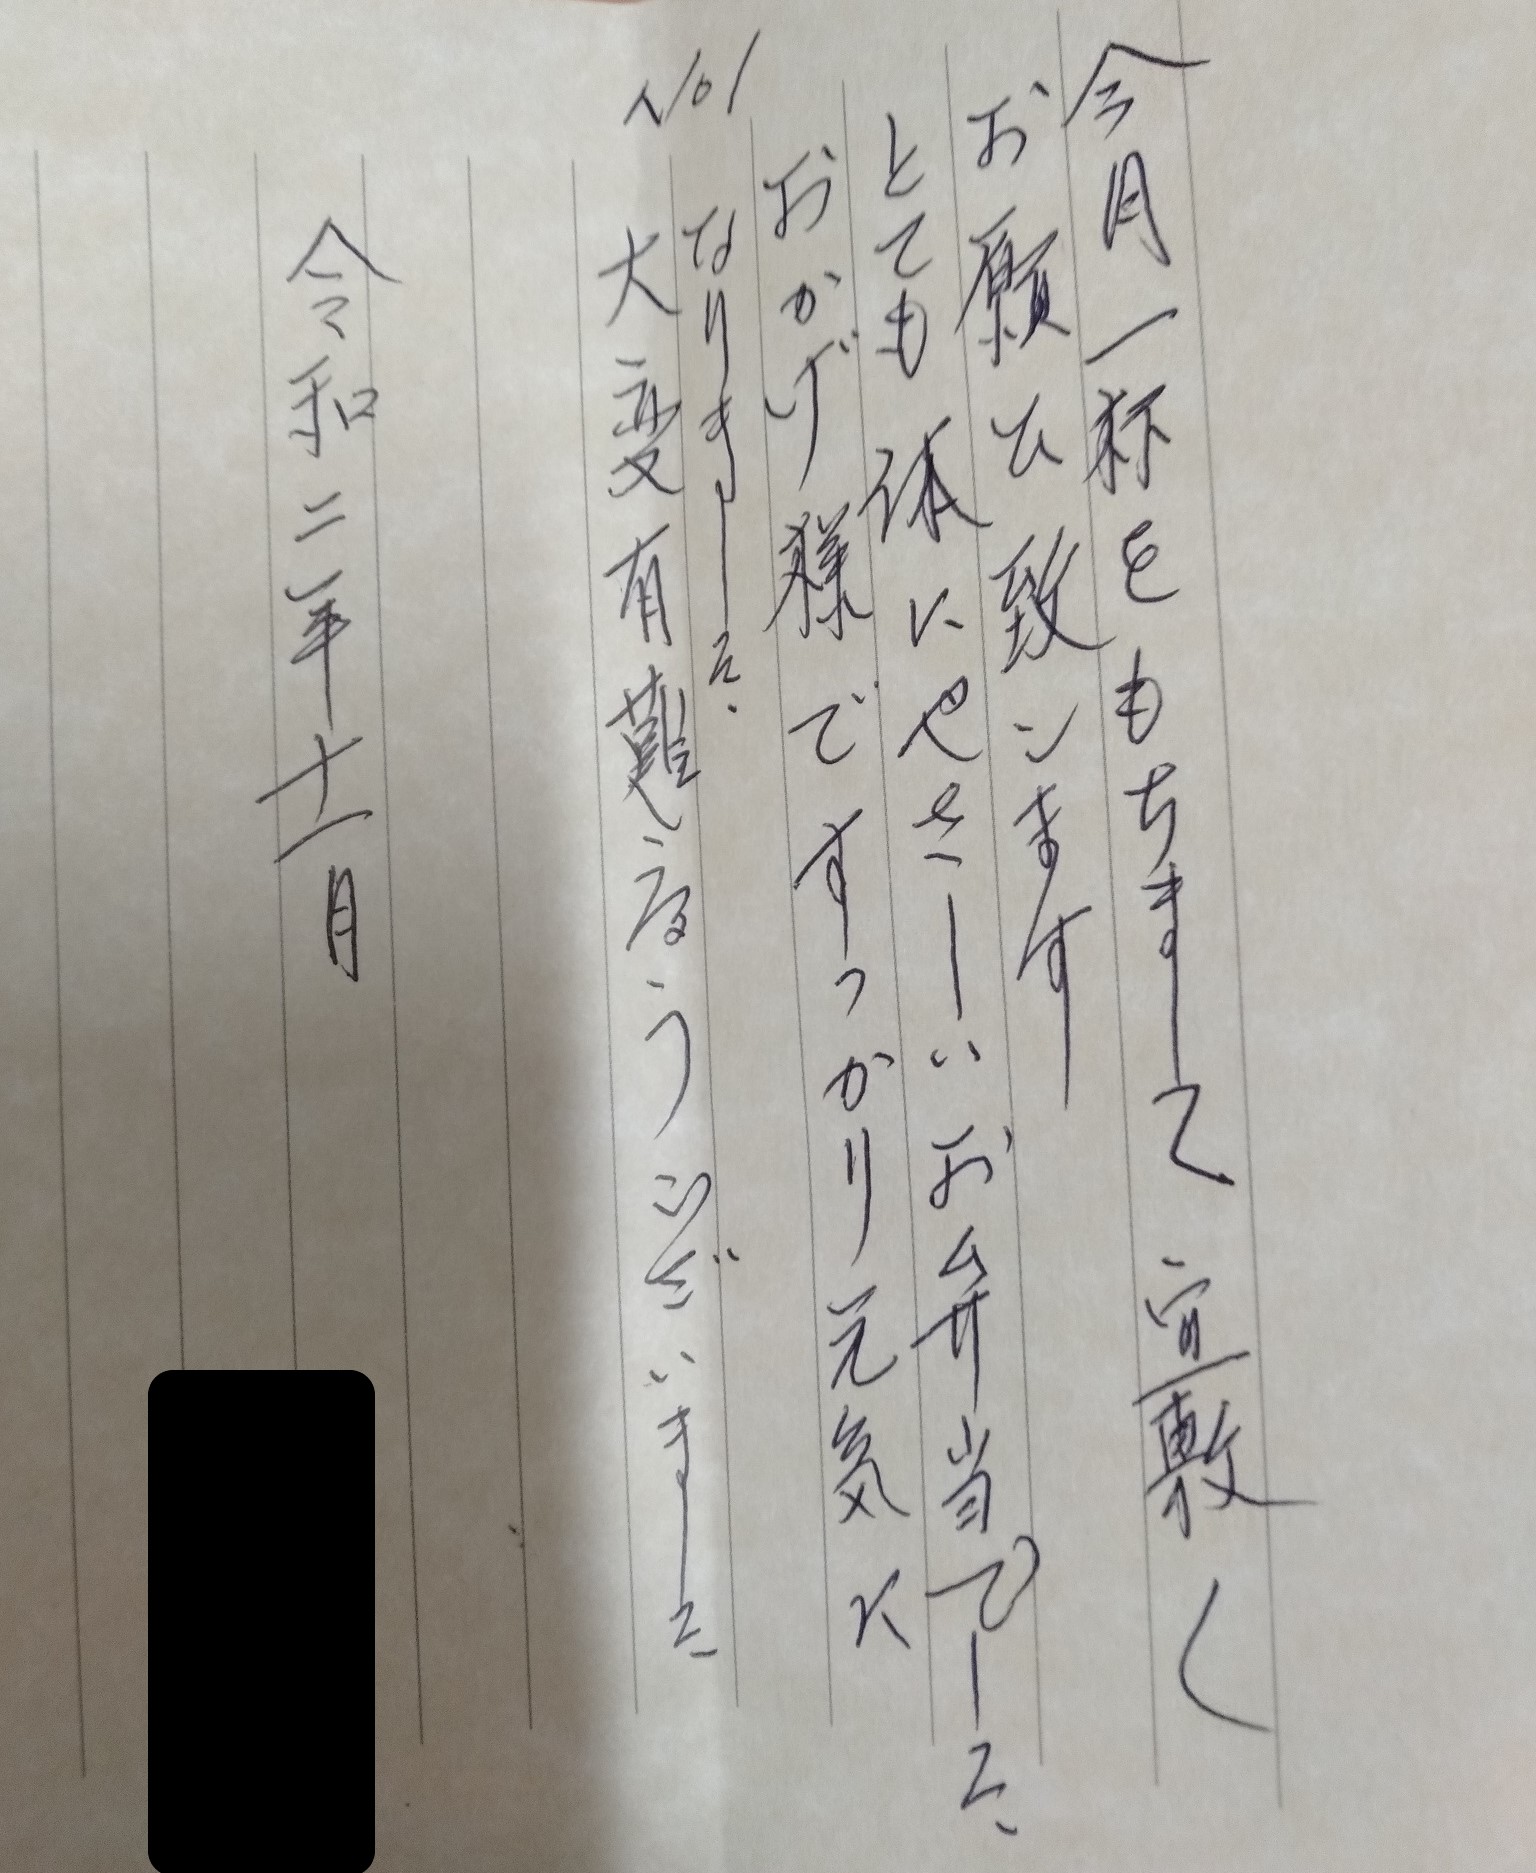 今月一杯をもちまして宜敷く
お願い致シます
とても体にやさしいお弁当でした
おかげ様ですっかり元気に
なりました.
大変有難度うございました
令和二年十一月
No1